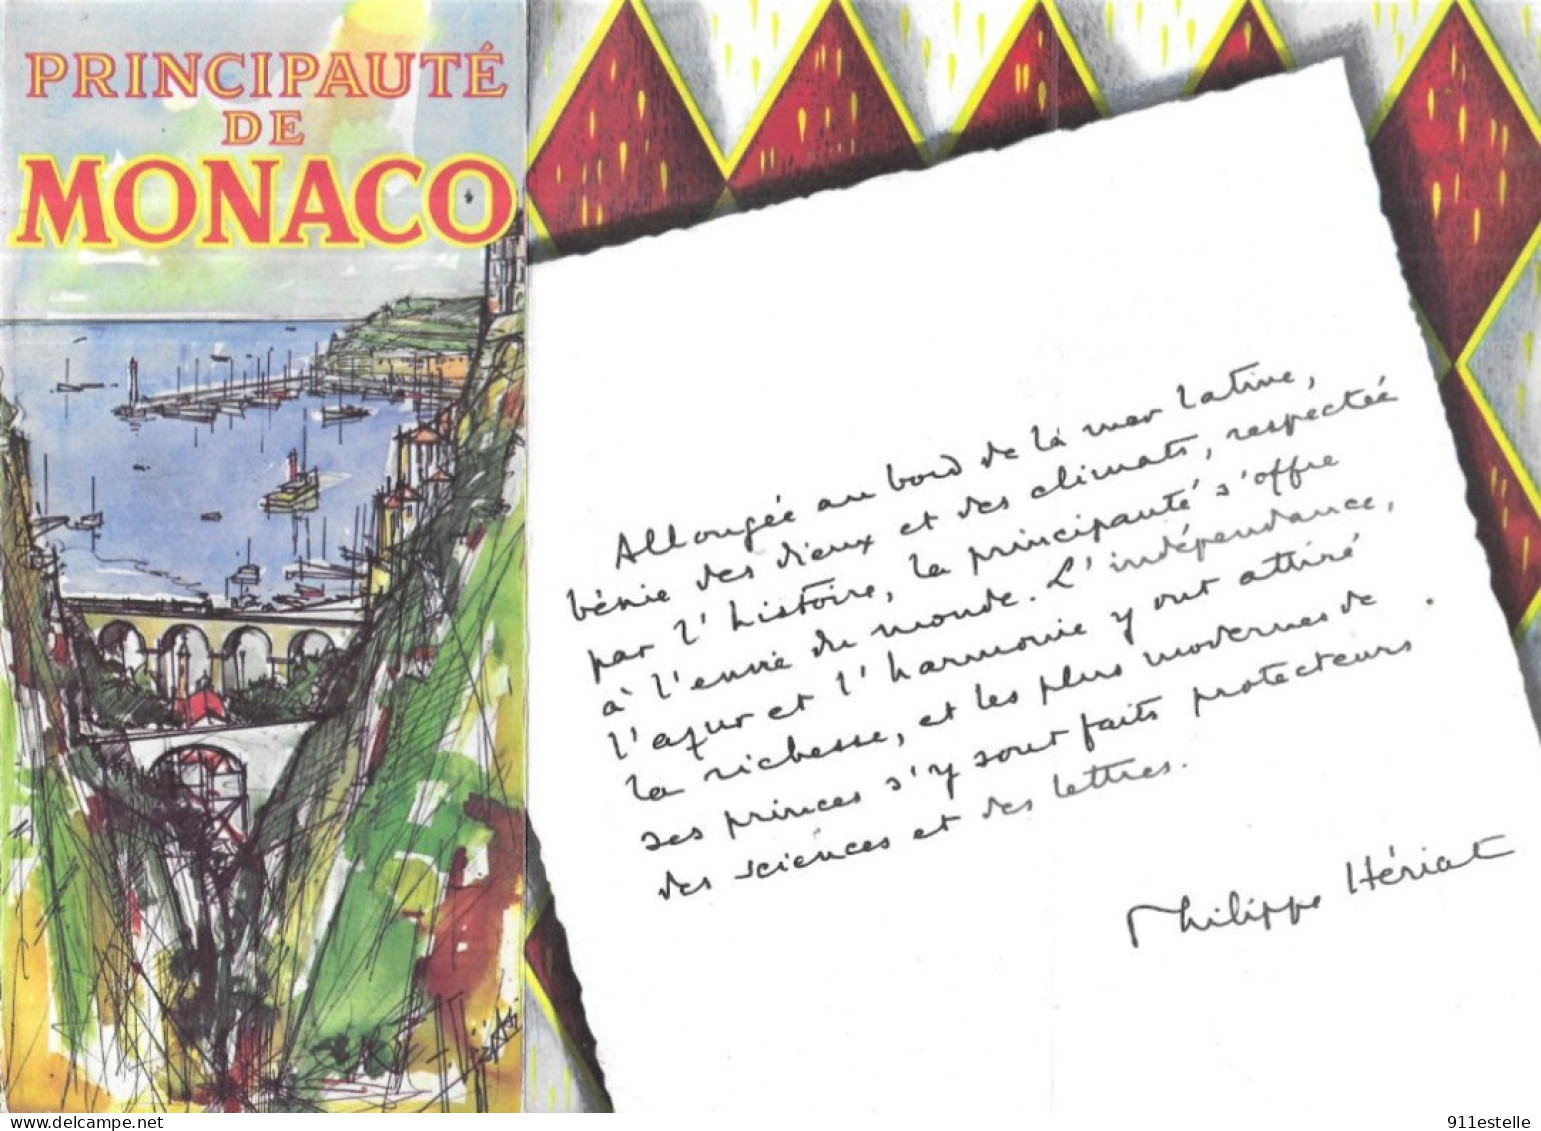 PRINCIPAUTÉ
DE
MONACO
Allongée au bord de la mer latine,
bénie des dieux et des climats, respectée
par l'histoire, la principauté s'offre
à l'envie du monde. L'indépendance,
l'azur et l'harmonie y ont attiré
la richesse, et les plus modernes de
ses princes s'y sont faits protecteurs.
des sciences et des lettres.
Philippe Hériat
911estelle
delcampe.net